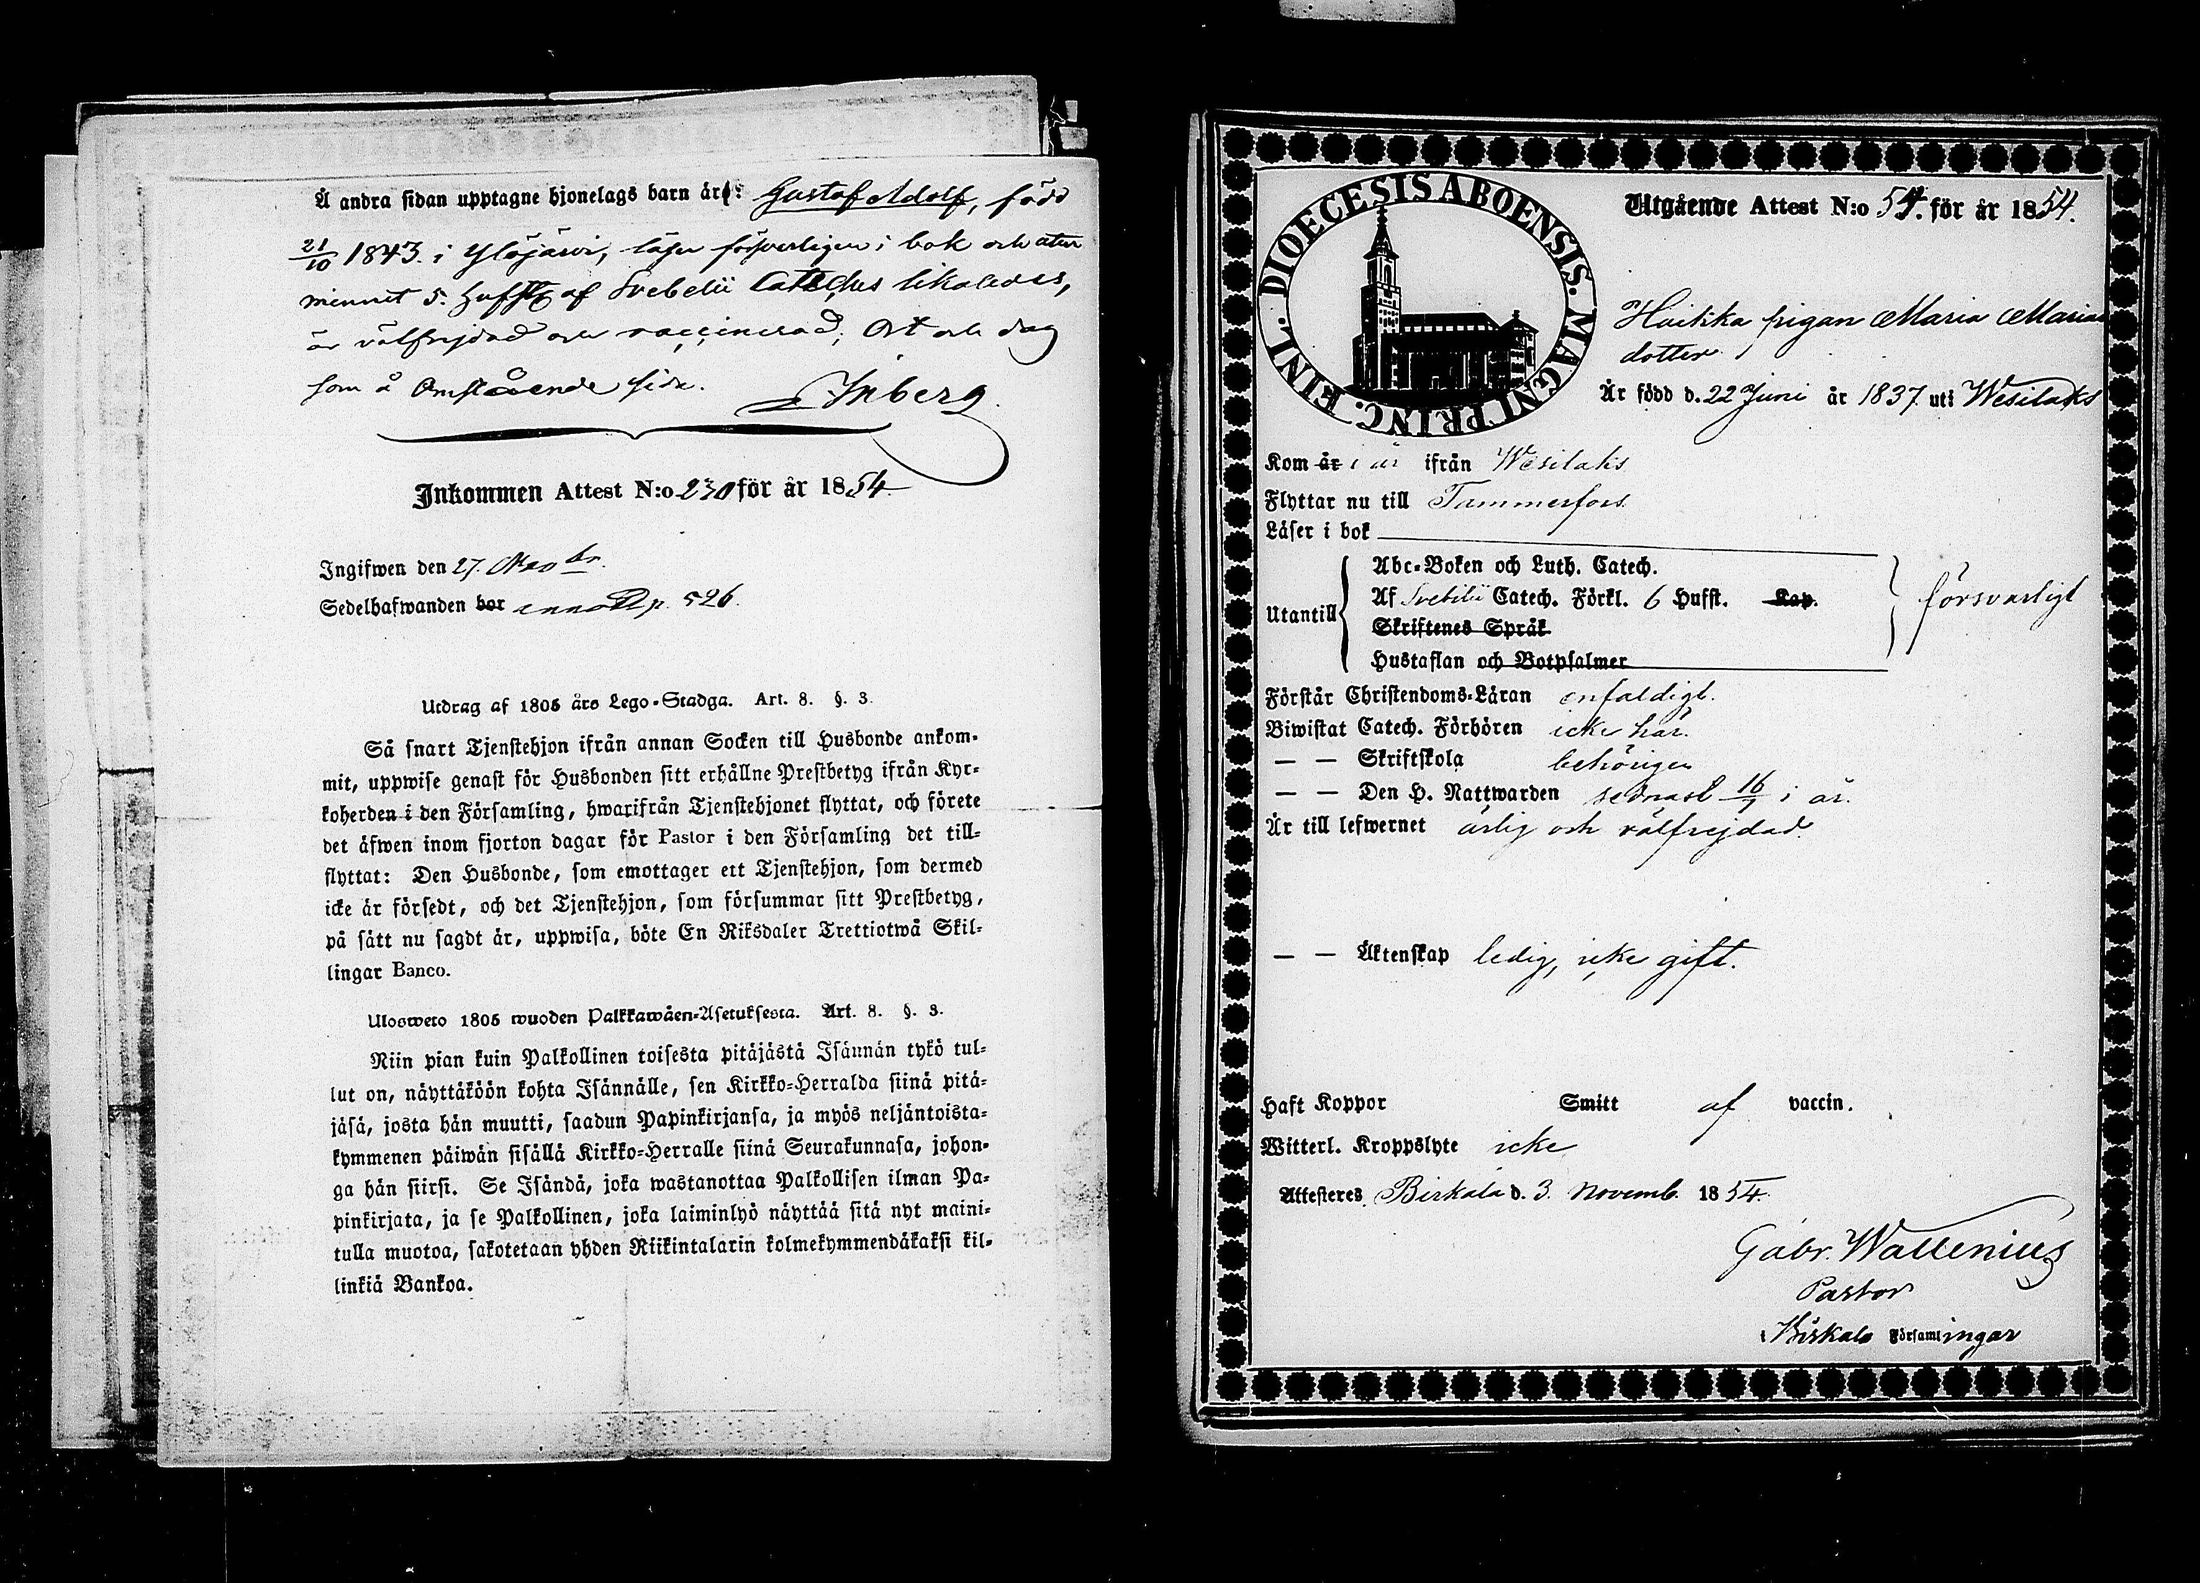 Å andra sidan upptagne hjonelags barn är: Gustaf Adolf, född
21/10 1843. i Ylöjärvi, läser försvarligen i bok och utur
minnet 5. Hufst af Svebelii Cateches likaledes,
är välfrejdad och vaccinerad; Ort och dag
som å Omstående sida.
Inberg
Inkommen Attest N:o 230 för år 1854
Ingifwen den 27. br
Sedelhafwanden bor 526.
Utdrag af 1805 års Lego-Stadga. Art. 8. §. 3.
Så snart Tjenstehjon ifrån annan Socken till Husbonde ankom-
mit, uppwise genast för Husbonden sitt erhållne Prestbetyg ifrån Kyr-
koherden i den Församling, hwarifrån Tjenstehjonet flyttat, och förete
det äfwen inom fjorton dagar för Pastor i den Församling det till-
flyttat: Den Husbonde, som emottager ett Tjenstehjon, som dermed
icke är försedt, och det Tjenstehjon, som försummar sitt Prestbetyg,
på sätt nu sagdt är, uppwisa, böte En Riksdaler Trettiotwå Skil-
lingar Banco.
Ulosweto 1805 wuoden Palkkawäen-Asetuksesta. Art. 8. §. 3.
Niin pian kuin Palkollinen toisesta pitäjästä Isännän tykö tul-
lut on, näyttäköön kohta Isännälle, sen Kirkko-Herralda siinä pitä-
jäsä, josta hän muutti, saadun Papinkirjansa, ja myös neljäntoista-
kymmenen päiwän sisällä Kirkko-Herralle siinä Seurakunnasa, johon-
ga hän siirsi. Se Isändä, joka wastanottaa Palkollisen ilman Pa-
pinkirjata, ja se Palkollinen, joka laiminlyö näyttää sitä nyt maini-
tulla muotoa, sakotetaan yhden Riikintalarin kolmekymmendäkaksi kil-
linkiä Bankoa.
DIOECESIS ABOENSIS. MAGNI PRINC. FINL.
Utgående Attest N:o 54. för år 1854.
Haikka pigan Maria Maria
dotter
Är född d. 22 Juni år 1837 uti Wesilaks
Kom år i år ifrån Wesilaks
Flyttar nu till Tammerfors
Läser i bok
Utantill
Abc-Boken och Luth. Catech.
Af Svebilii Catech. Förkl. 6 Hufst. Kap.
Skriftenes Språk
Hustaflan och Botpsalmer
försvarligt
Förstår Christendoms-Läran enfaldigt.
Biwistat Catech. Förhören icke här.
— — Skriftskola behörigen
— — Den H. Nattwarden sednast 16/7 i år.
Är till lefwernet ärlig och välfrejdad.
— — Äktenskap ledig, icke gift.
Haft Koppor Smitt af vaccin.
Witterl. Kroppslyte icke
Attesteres Birkala d. 3. Novemb. 1854.
Gabr. Wallenius
Pastor
i Birkala Församlingar